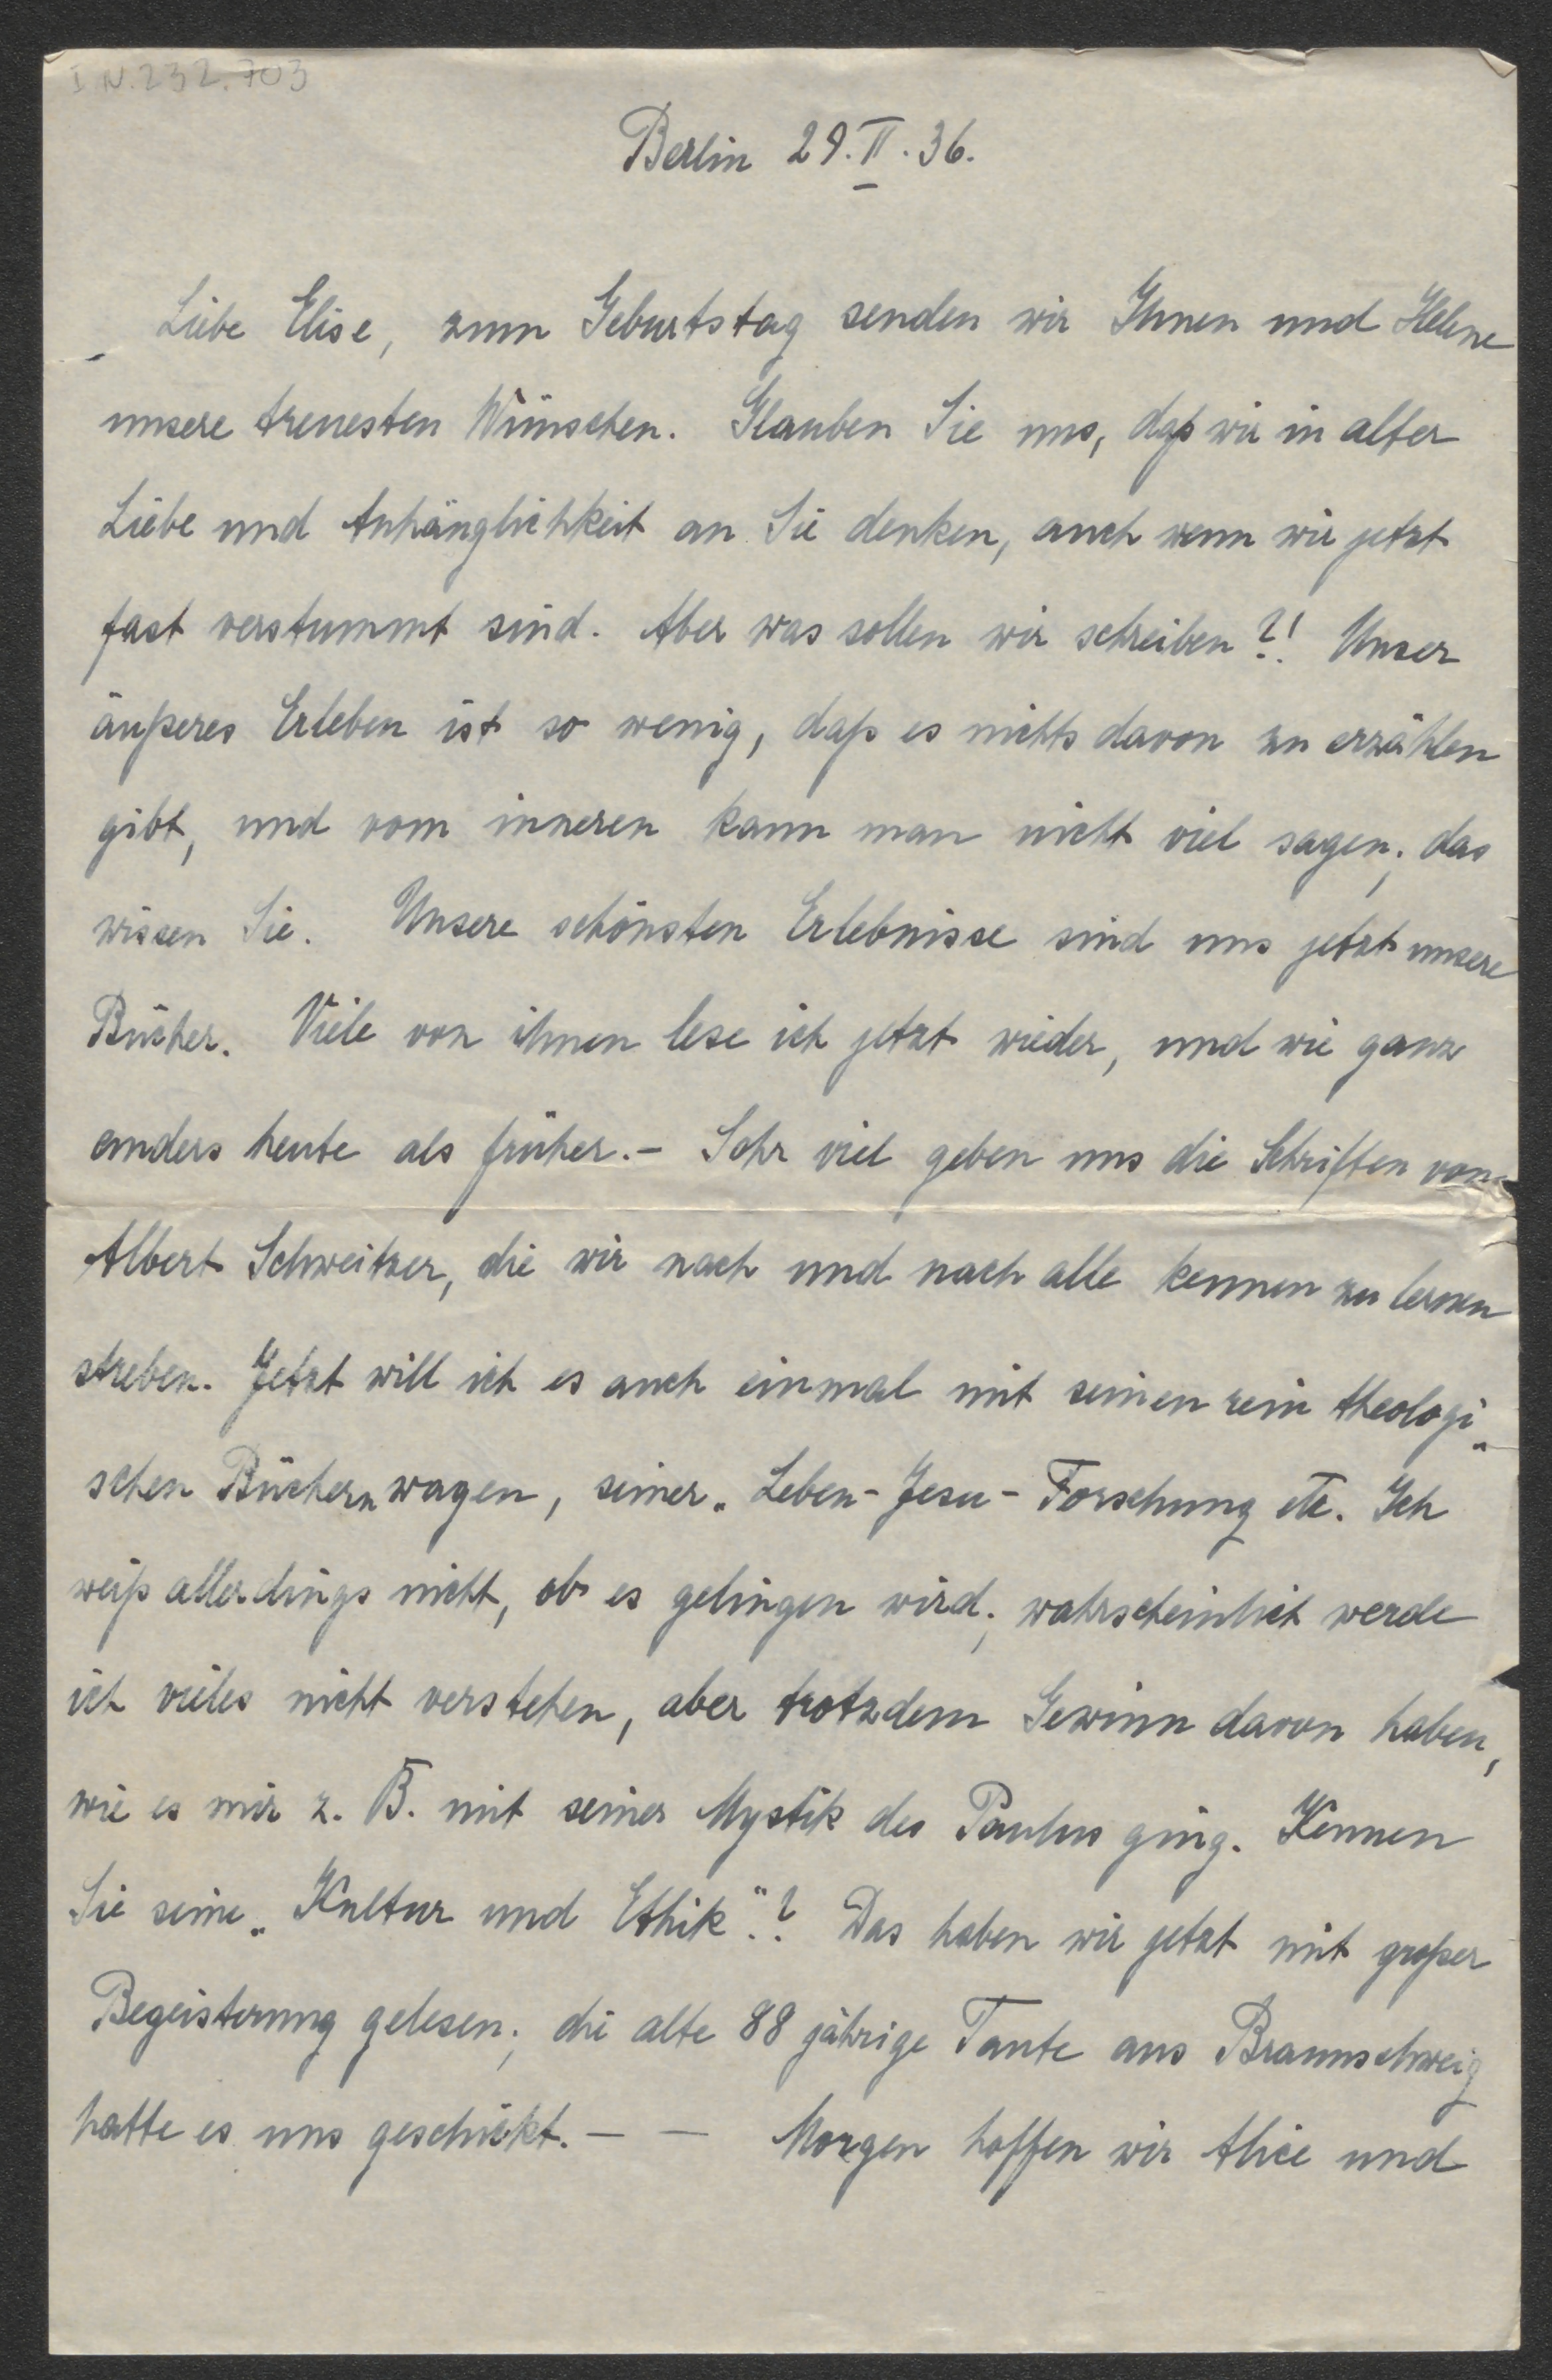 I N. 232.703
Berlin 29.II.36.
Liebe Elise, zum Geburtstag senden wir Ihnen und Helene
unsere treuesten Wünschen. Glauben Sie uns, daß wir in alter
Liebe und Anhänglichkeit an Sie denken, auch wenn wir jetzt
fast verstummt sind. Aber was sollen wir schreiben?! Unser
äußeres Erleben ist so wenig, daß es nichts davon zu erzählen
gibt, und vom inneren kann man nicht viel sagen; das
wissen Sie. Unsere schönsten Erlebnisse sind uns jetzt unsere
Bücher. Viele von ihnen lese ich jetzt wieder, und wie ganz
anders heute als früher.- Sehr viel geben uns die Schriften von
Albert Schweitzer, die wir nach und nach alle kennen zu lernen
streben. Jetzt will ich es auch einmal mit seinen rein theologi„
schen Büchern wagen, seiner „Leben-Jesu-Forschung etc. Ich
weiß allerdings nicht, ob es gelingen wird; wahrscheinlich werde
ich vieles nicht verstehen, aber trotzdem Gewinn davon haben,
wie es mir z. B. mit seiner Mystik des Paulus ging. Kennen
Sie seine „Kultur und Ethik"? Das haben wir jetzt mit großer
Begeisterung gelesen; die alte 88 jährige Tante aus Braunschweig
hatte es uns geschickt. — — Morgen hoffen wir Alice und